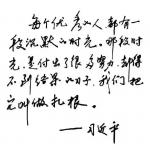 每个优秀的人都有一
段沉默的时光。那段时
光，是付出了很多努力，却得
不到结果的日子，我们把
它叫做扎根。
——习近平